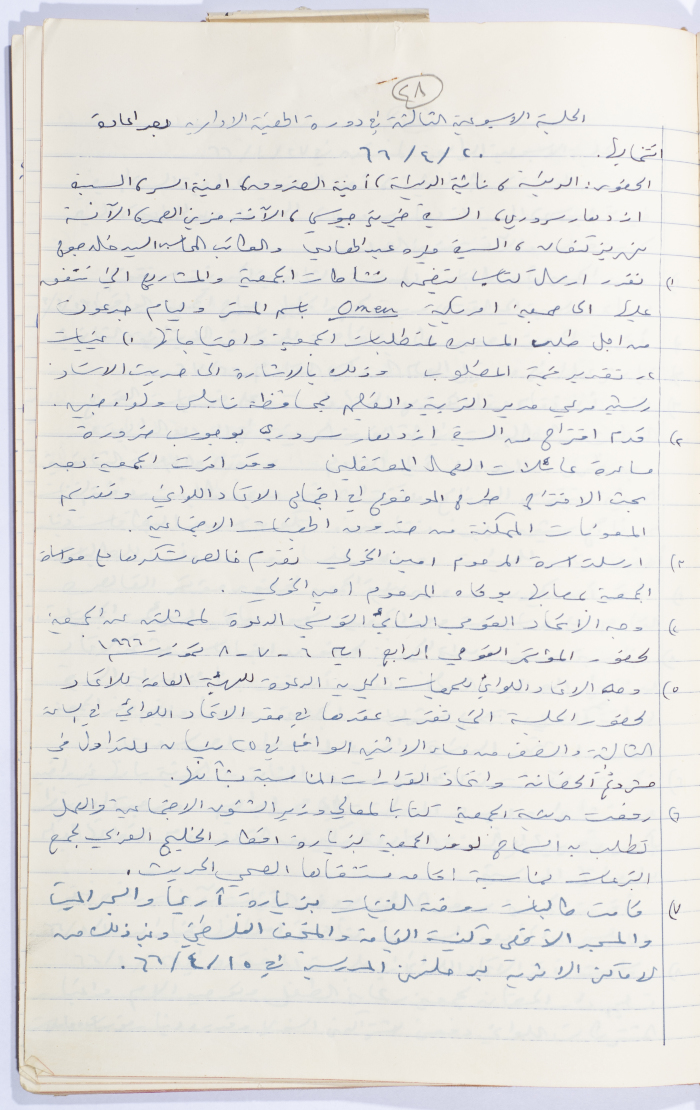 ٤٨
الجلسة الاسبوعية الثالثة في دورة الهيئة الادارية بعد اعادة
انتخابها. ٢٠/٤/٦٦
الحضور: الرئيسة، نائبة الرئيسة، أمينة الصندوق، امينة السر، السيدة
ازدهار سروري، السيدة خيرية جوسي، الآنسة مزين العمد، الآنسة
نهريز كنعان، السيدة عبد الهادي والكاتب المحاسب السيد خالد
١) تقرر ارسال كتاب يتضمن نشاطات الجمعية والمشاريع التي تنفق
عليها الى جمعية امريكية Omen باسم المستر وليام جدعون
من اجل طلب المساعدة لمتطلبات الجمعية واحتياجاتها
تقدير قيمة المطلوب وذلك بالاشارة الى حديث الاستاذ
رشيد مرعي مدير التربية والتعليم لمحافظة نابلس ولواء جنين.
٢) قدم اقتراح من السيدة ازدهار سروري بوجوب ضرورة
مساعدة عائلات العمال المعتقلين وقد اقرت الجمعية بعد
بحث الاقتراح طرح الموضوع في اجتماع الاتحاد اللوائي وتقديم
المعونات الممكنة من صندوق الجمعيات الاجتماعية.
٣) ارسلت اسرة المرحوم امين الخولي تقدم خالص شكرها على مواساة
الجمعية بمصابها بوفاة المرحوم امين الخولي.
٤) وجه الاتحاد القومي النسائي التونسي الدعوة لممثلتين عن الجمعية
لحضور المؤتمر القومي الرابع ايام ٦ - ٧ - ٨ تموز سنة ١٩٦٦
٥) وجه الاتحاد اللوائي للجمعيات الخيرية الدعوة للهيئة العامة للاتحاد
لحضور الجلسة التي تقرر عقدها في مقر الاتحاد اللوائي في الساعة
الثالثة والنصف من مساء الاثنين الواقع في ٢٥ نيسان للتداول في
مشروع الحضانة واتخاذ القرارات المناسبة بشأنها.
٦) رفعت رئيسة الجمعية كتابا لمعالي وزير الشئون الاجتماعية والعمل
تطلب به السماح لوفد الجمعية بزيارة اقطار الخليج العربي لجمع
التبرعات بمناسبة اقامة مستشفاها الصحي الحديث.
٧) قامت طالبات روضة الفتيات بزيارة أريحا والبحر الميت
والمسجد الأقصى وكنيسة القيامة والمتحف الفلسطيني وغير ذلك من
الاماكن الاثرية برحلتهن المدرسية في ١٥/٤/٦٦.